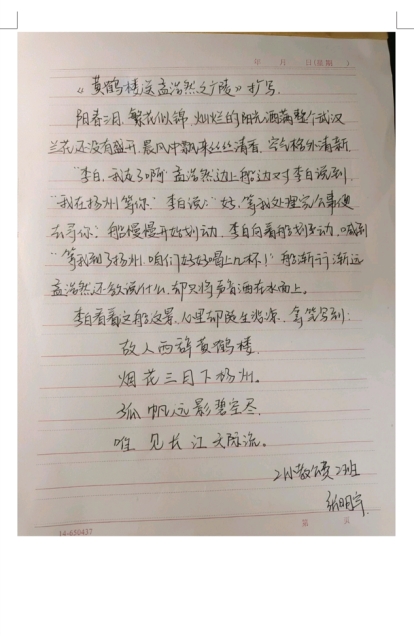 年 月 日(星期 )
《黄鹤楼送孟浩然之广陵》扩写
阳春三月,繁花似锦,灿烂的阳光洒满整个武汉
兰花还没有盛开,晨风中飘来丝丝清香,空气格外清新
"李白,我走了啊"孟浩然边上船边对李白说到,
"我在扬州等你"李白说:"好,等我处理完公事便
去寻你"船慢慢开始划动,李白向着船划动,喊到
"等我到了扬州,咱们好好喝上几杯!"船渐行渐远
孟浩然还欲说什么,却只将声音洒在水面上。
李白看着这般这景,心里却陡生悲凉,拿笔写到:
故人西辞黄鹤楼,
烟花三月下扬州。
孤帆远影碧空尽,
唯见长江天际流。
2班
张明宇
14-650437
第 页